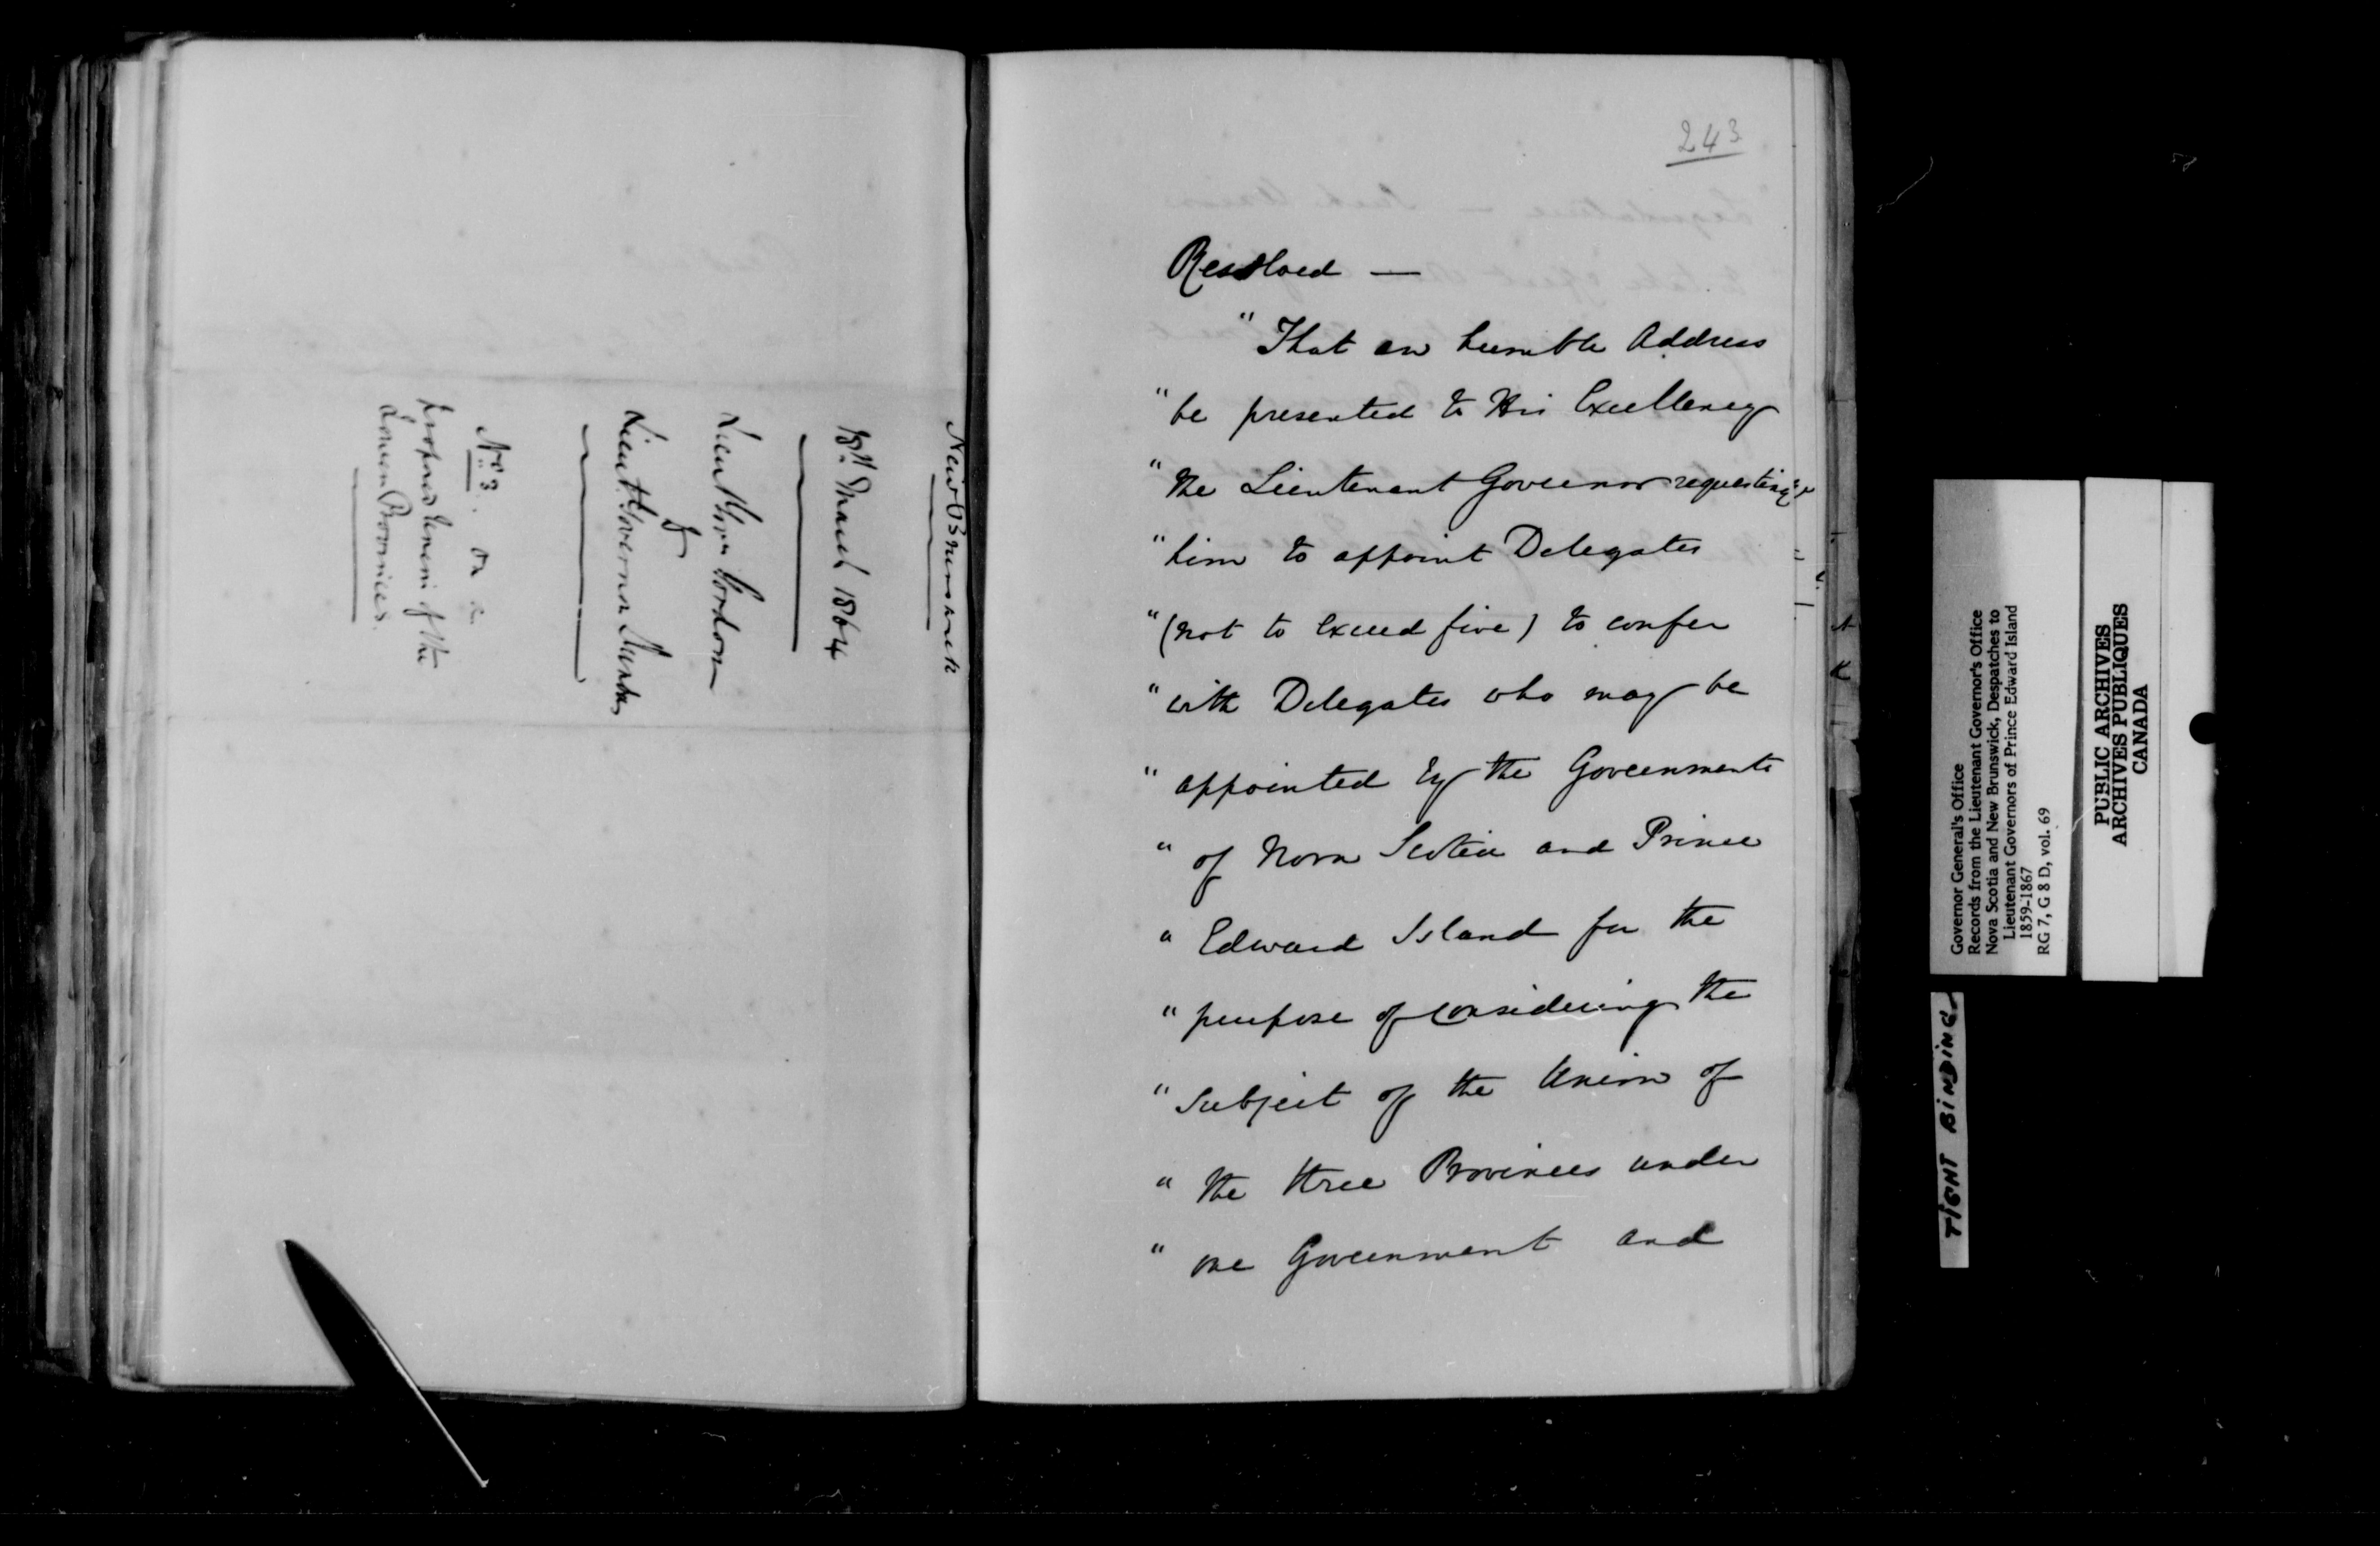 New Brunswick
18th March 1864
Lieut Govr Gordon
to
Lieut Governor Dundas
No 3. on a
proposed Union of the
Lower Provinces.
243
Resolved —
" That an humble Address
" be presented to His Excellency
" the Lieutenant Governor requesting
" him to appoint Delegates
" (not to exceed five) to confer
" with Delegates who may be
" appointed by the Governments
" of Nova Scotia and Prince
" Edward Island for the
" purpose of considering the
" Subject of the Union of
" the three Provinces under
" one Government and
Governor General's Office
Records from the Lieutenant Governor's Office
Nova Scotia and New Brunswick, Despatches to
Lieutenant Governors of Prince Edward Island
1859-1867
RG 7, G 8 D, vol. 69
PUBLIC ARCHIVES
ARCHIVES PUBLIQUES
CANADA
TIGHT BINDING